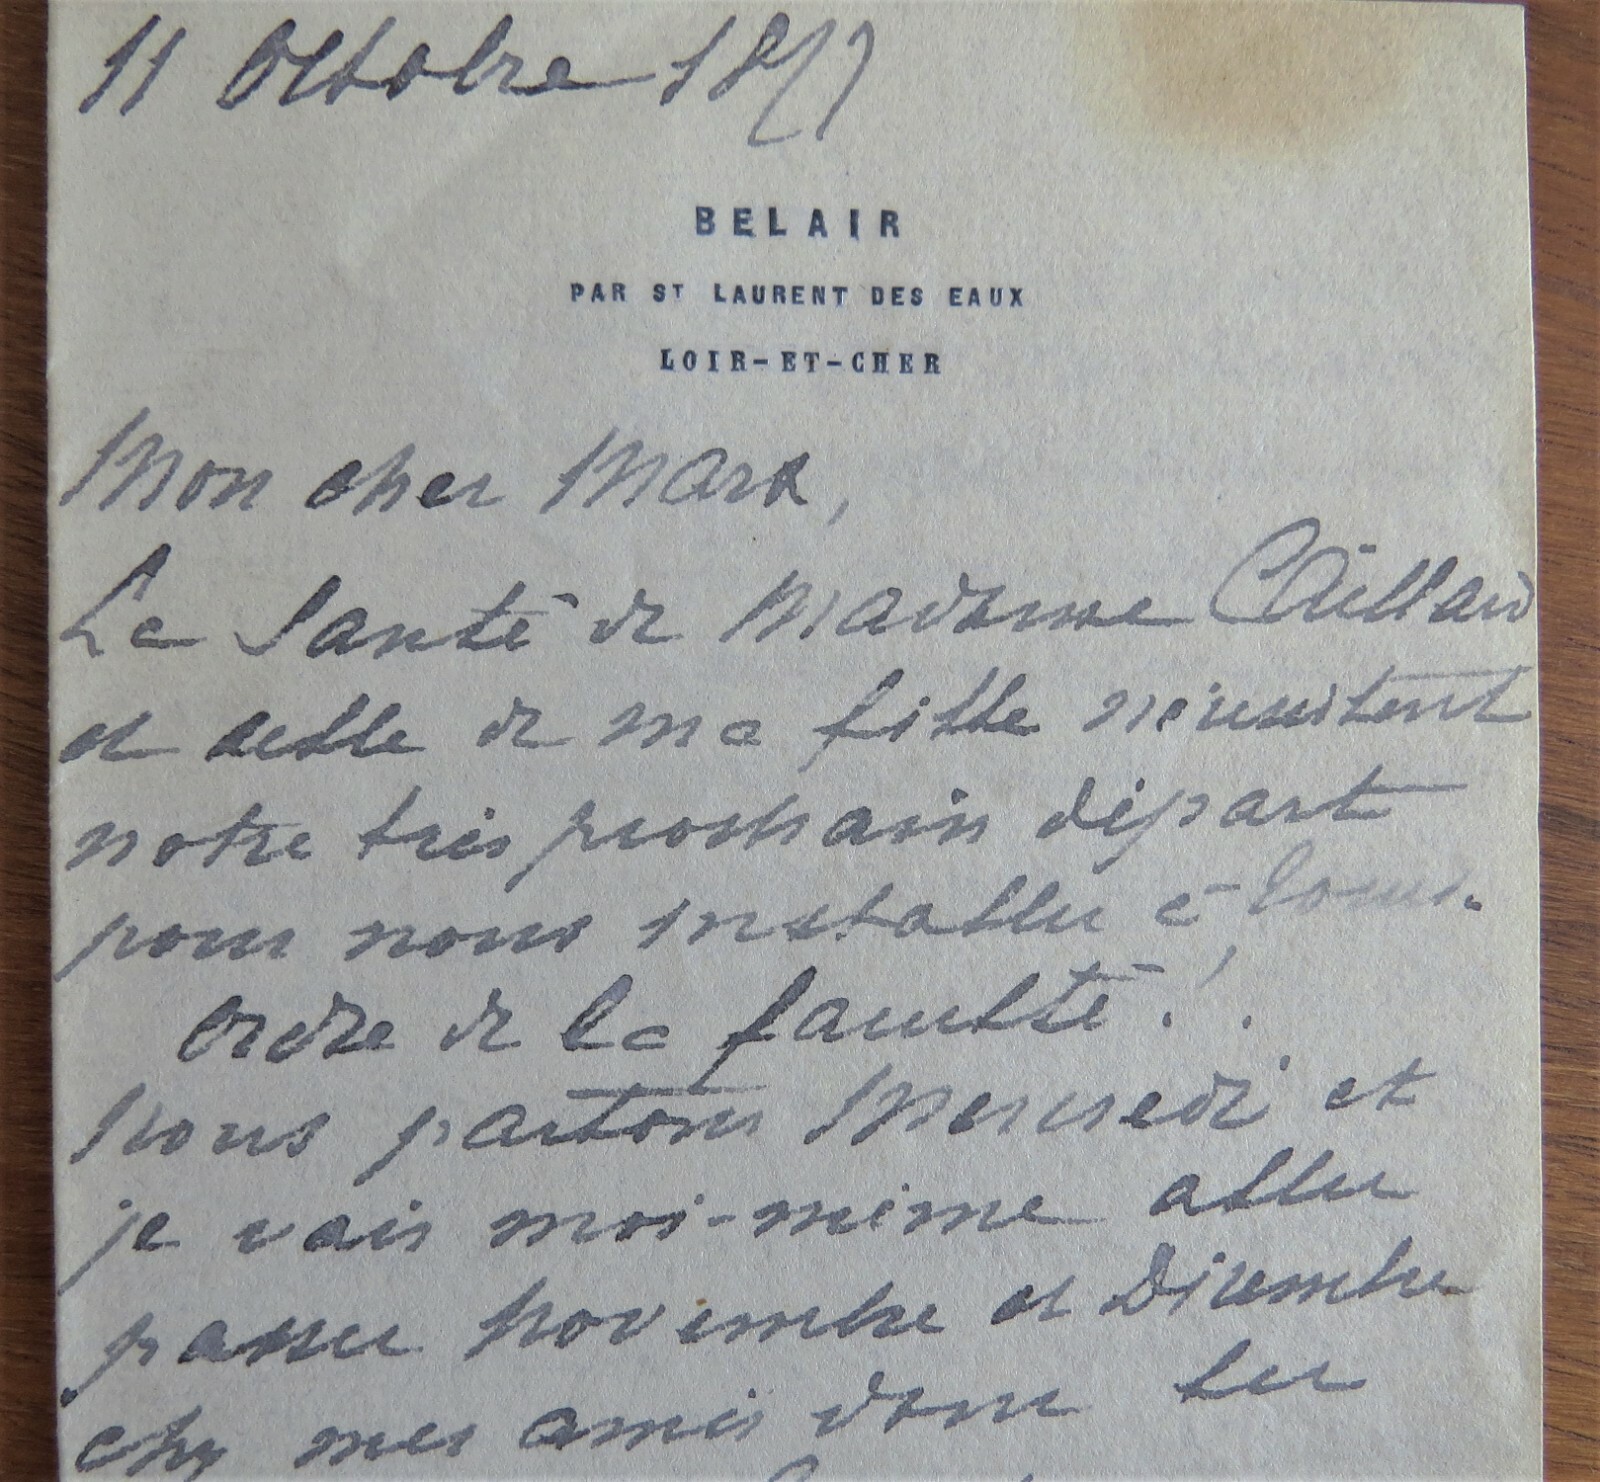 11 Octobre 1877
BELAIR
PAR ST LAURENT DES EAUX
LOIR-ET-CHER
Mon cher Mark,
La Santé de Madame Caillard
et celle de ma fille nécessitent
notre très prochain départ
pour nous installer à
Ordre de la faculté!
Nous partons Mercredi et
je vais moi-même aller
passer Novembre et Décembre
chez mes amis dans